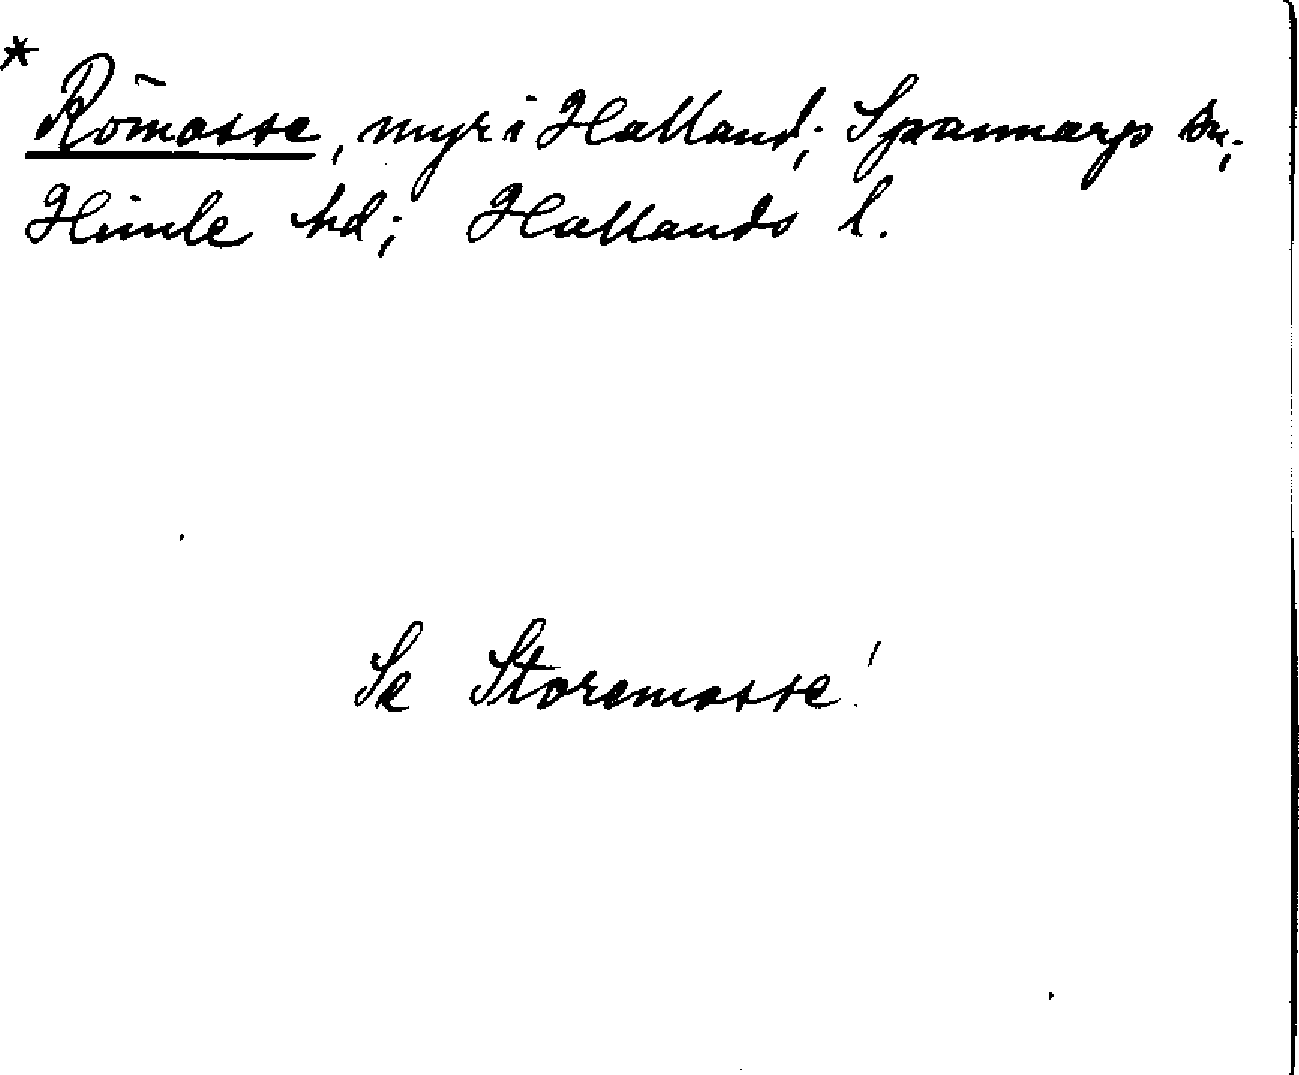 * Römosse, myr i Halland; Spannarp sn;
Himle hd; Hallands l.
Se Storemosse!